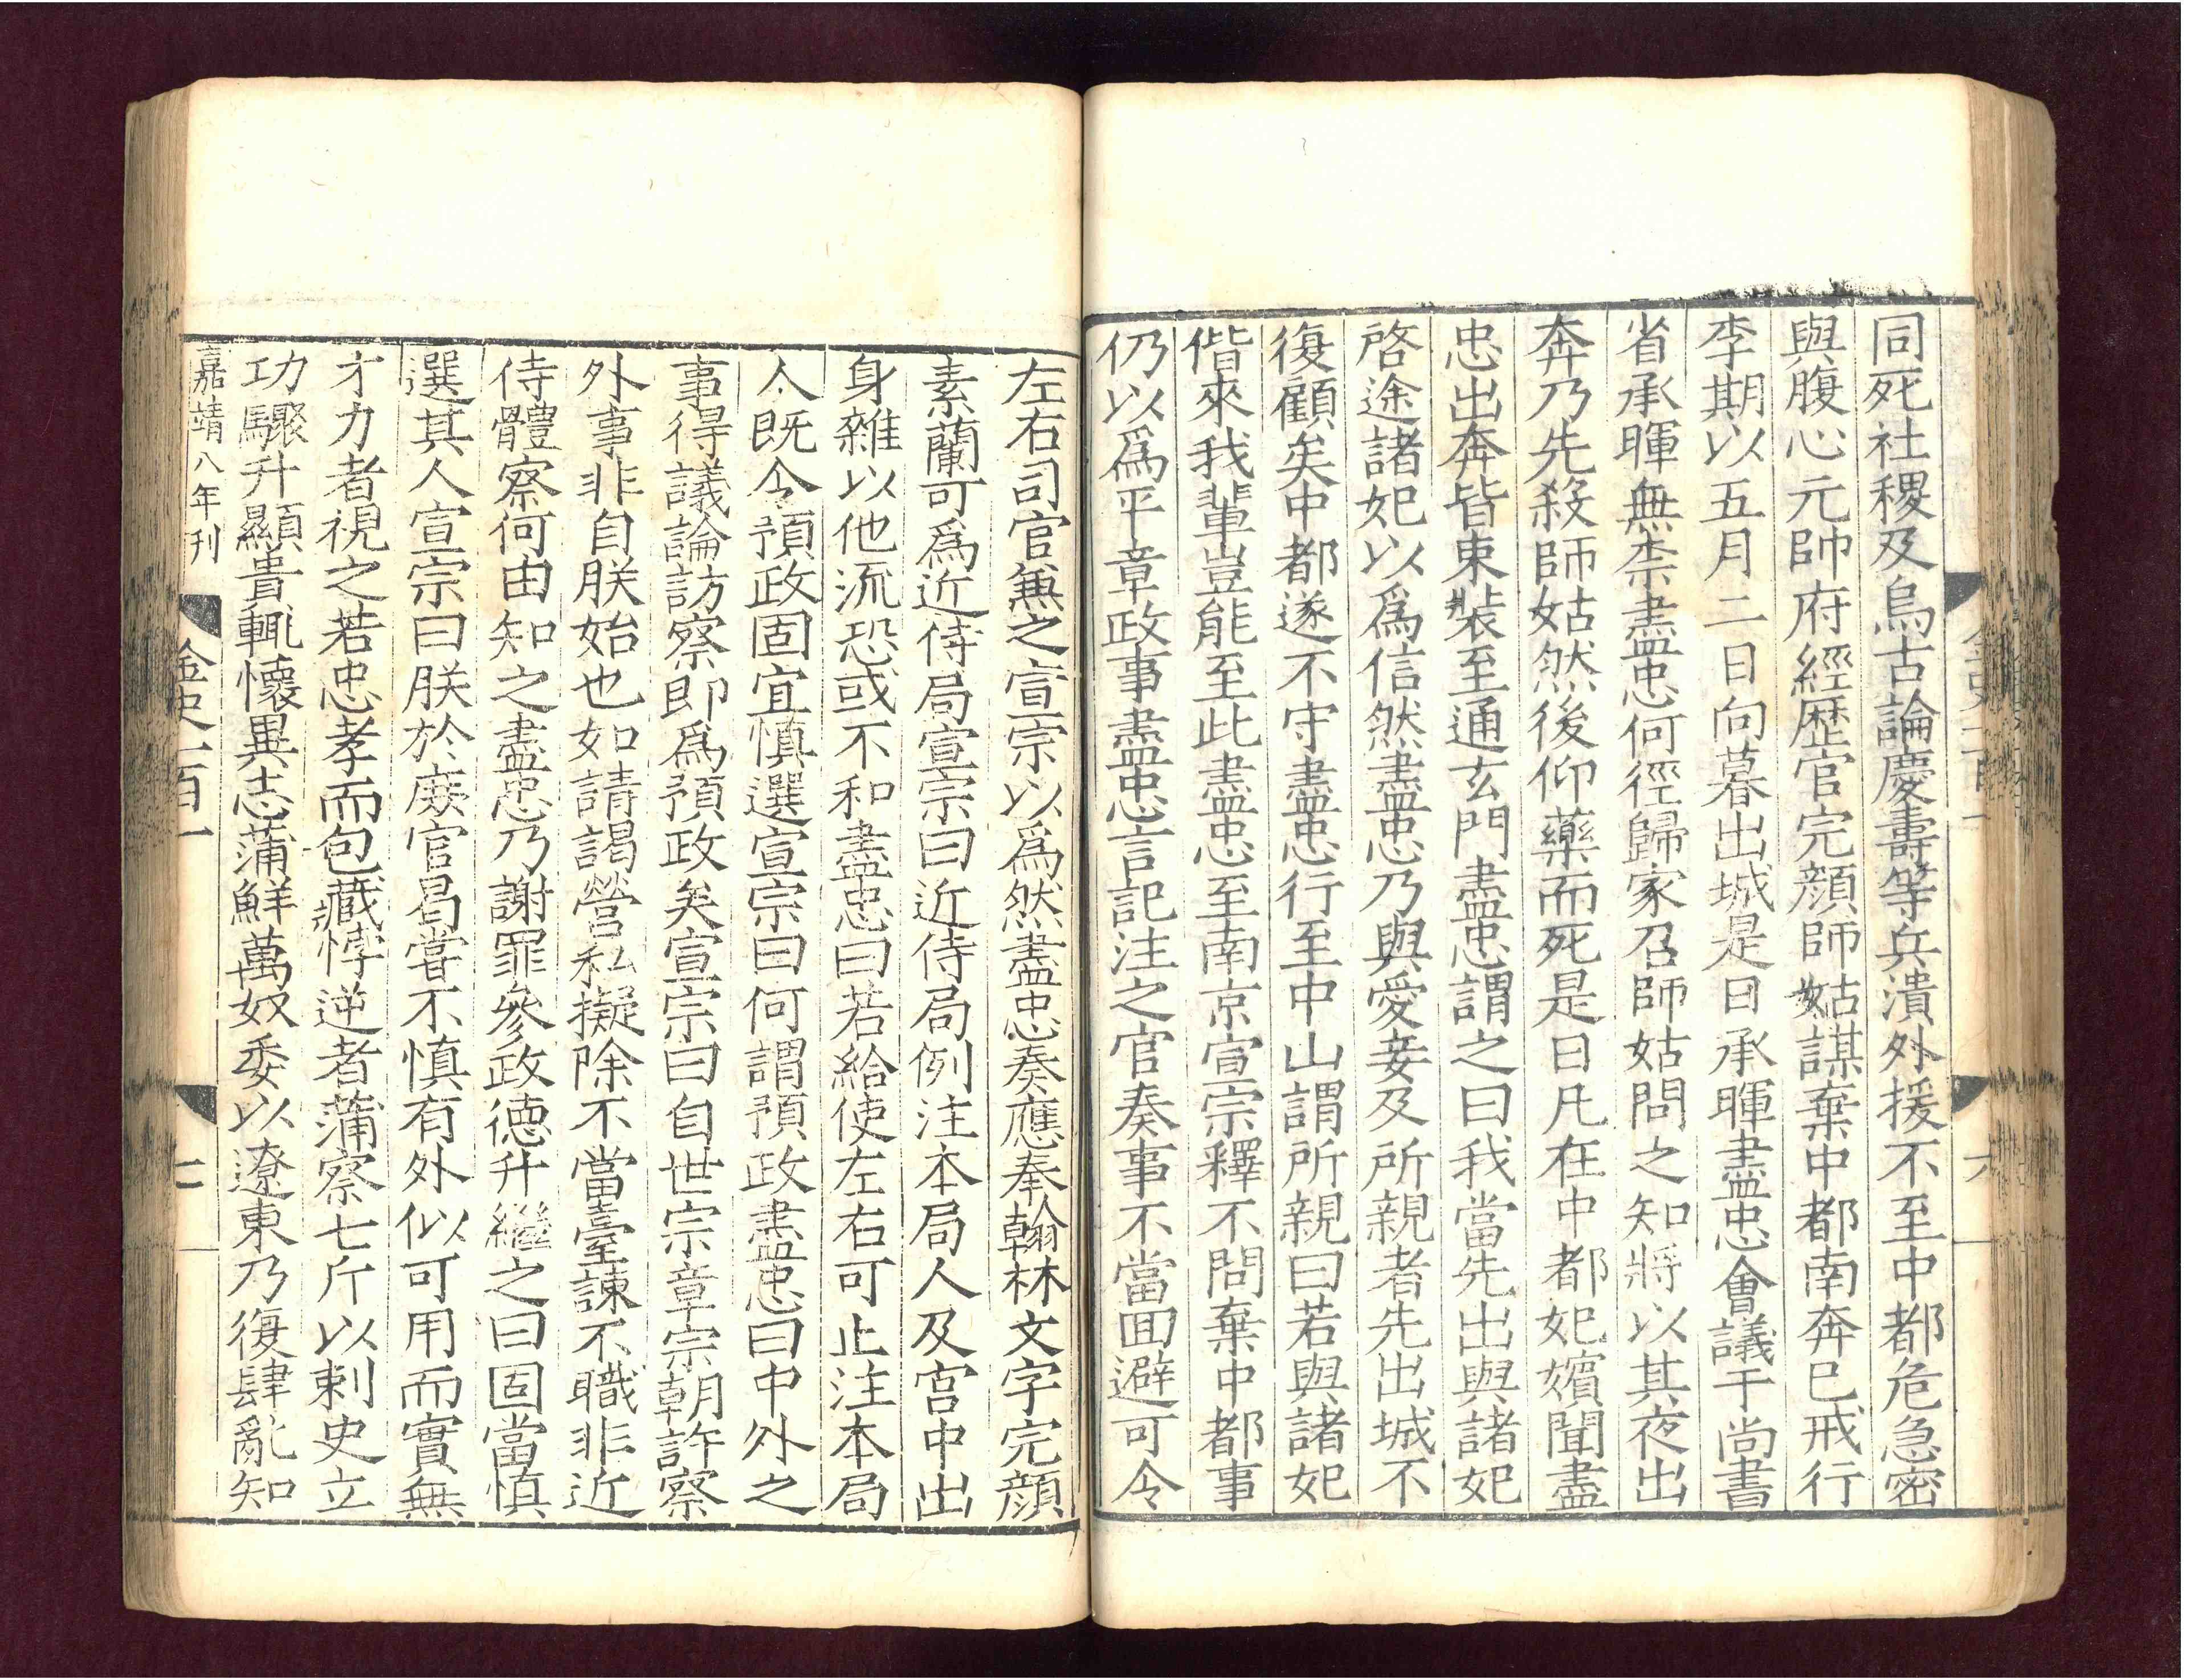 同死社稷及烏古論慶壽等兵潰外援不至中都危急密
與腹心元帥府經歷官完顏師姑謀棄中都南奔已戒行
李期以五月二日向暮出城是日承暉盡忠會議于尚書
省承暉無柰盡忠何徑歸家召師姑問之知將以其夜出
奔乃先殺師姑然後仰藥而死是日凡在中都妃嬪聞盡
忠出奔皆束裝至通玄門盡忠謂之曰我當先出與諸妃
啓途諸妃以爲信然盡忠乃與愛妾及所親者先出城不
復顧矣中都遂不守盡忠行至中山謂所親曰若與諸妃
偕來我輩豈能至此盡忠至南京宣宗釋不問棄中都事
仍以爲平章政事盡忠言記注之官奏事不當囬避可令
左右司官兼之宣宗以爲然盡忠奏應奉翰林文字完顏
素蘭可爲近侍局宣宗曰近侍局例注本局人及宮中出
身雜以他流恐或不和盡忠曰若給使左右可止注本局
人既令預政固宜慎選宣宗曰何謂預政盡忠曰中外之
事得議論訪察即爲預政矣宣宗曰自世宗章宗朝許察
外事非自朕始也如請謁營私擬除不當臺諫不職非近
侍體察何由知之盡忠乃謝罪參政德升繼之曰固當慎
選其人宣宗曰朕於庶官曷嘗不慎有外似可用而實無
才力者視之若忠孝而包藏悖逆者蒲察七斤以刺史立
功驟升顯貴輒懷異志蒲鮮萬奴委以遼東乃復肆亂知
嘉靖八年刊
金史一百一